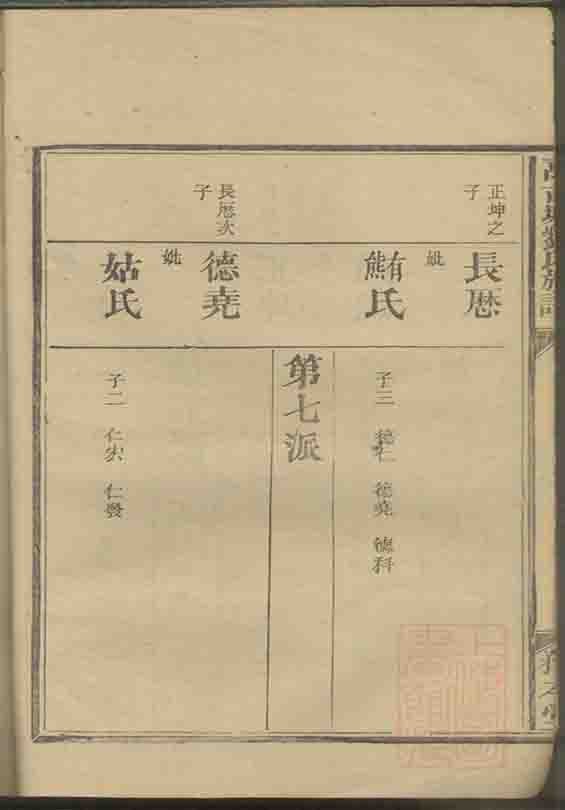 正坤之
子
長厯
妣
熊氏
子三 德仁 德堯 德科
第七派
長厯次
子
德堯
妣
姑氏
子二 仁宏 仁發